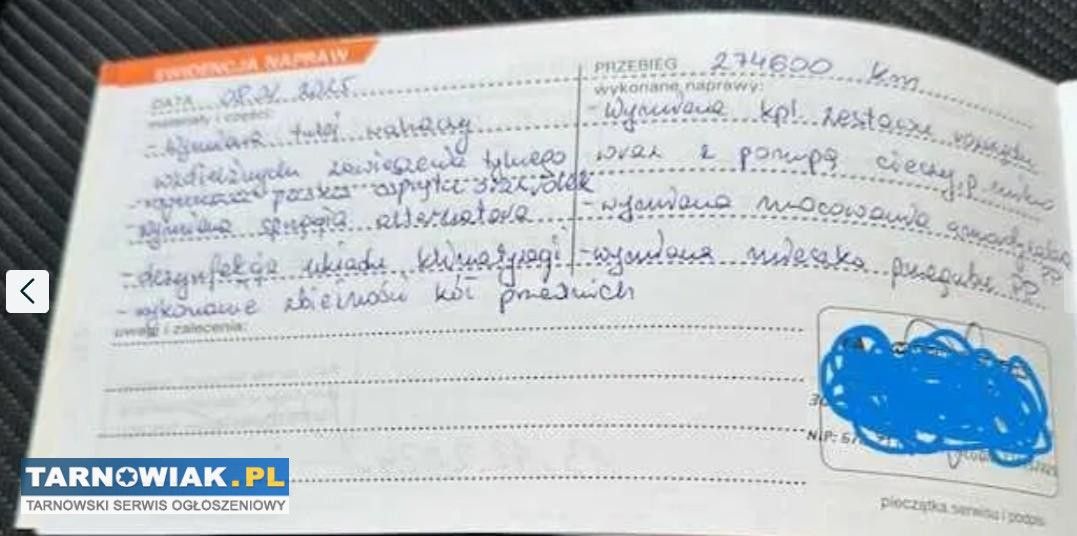 EWIDENCJA NAPRAW
DATA 2025
materiały i części:
- wymiana tulei wahaczy
wzdłużnych zawieszenia tylnego
- wymiana paska osprzętu
- wymiana sprzęgła alternatora
- dezynfekcja układu klimatyzacji
- wykonanie zbieżności kół przednich
uwagi i zalecenia:
PRZEBIEG 274600 km
wykonane naprawy:
- Wymiana kpl. zestawu rozrządu
wraz z pompą cieczy
- wymiana mocowania amortyzatora PP
- wymiana mieszka przegubu PP
NIP: 67
pieczątka serwisu i podpis
TARNOWIAK.PL
TARNOWSKI SERWIS OGŁOSZENIOWY